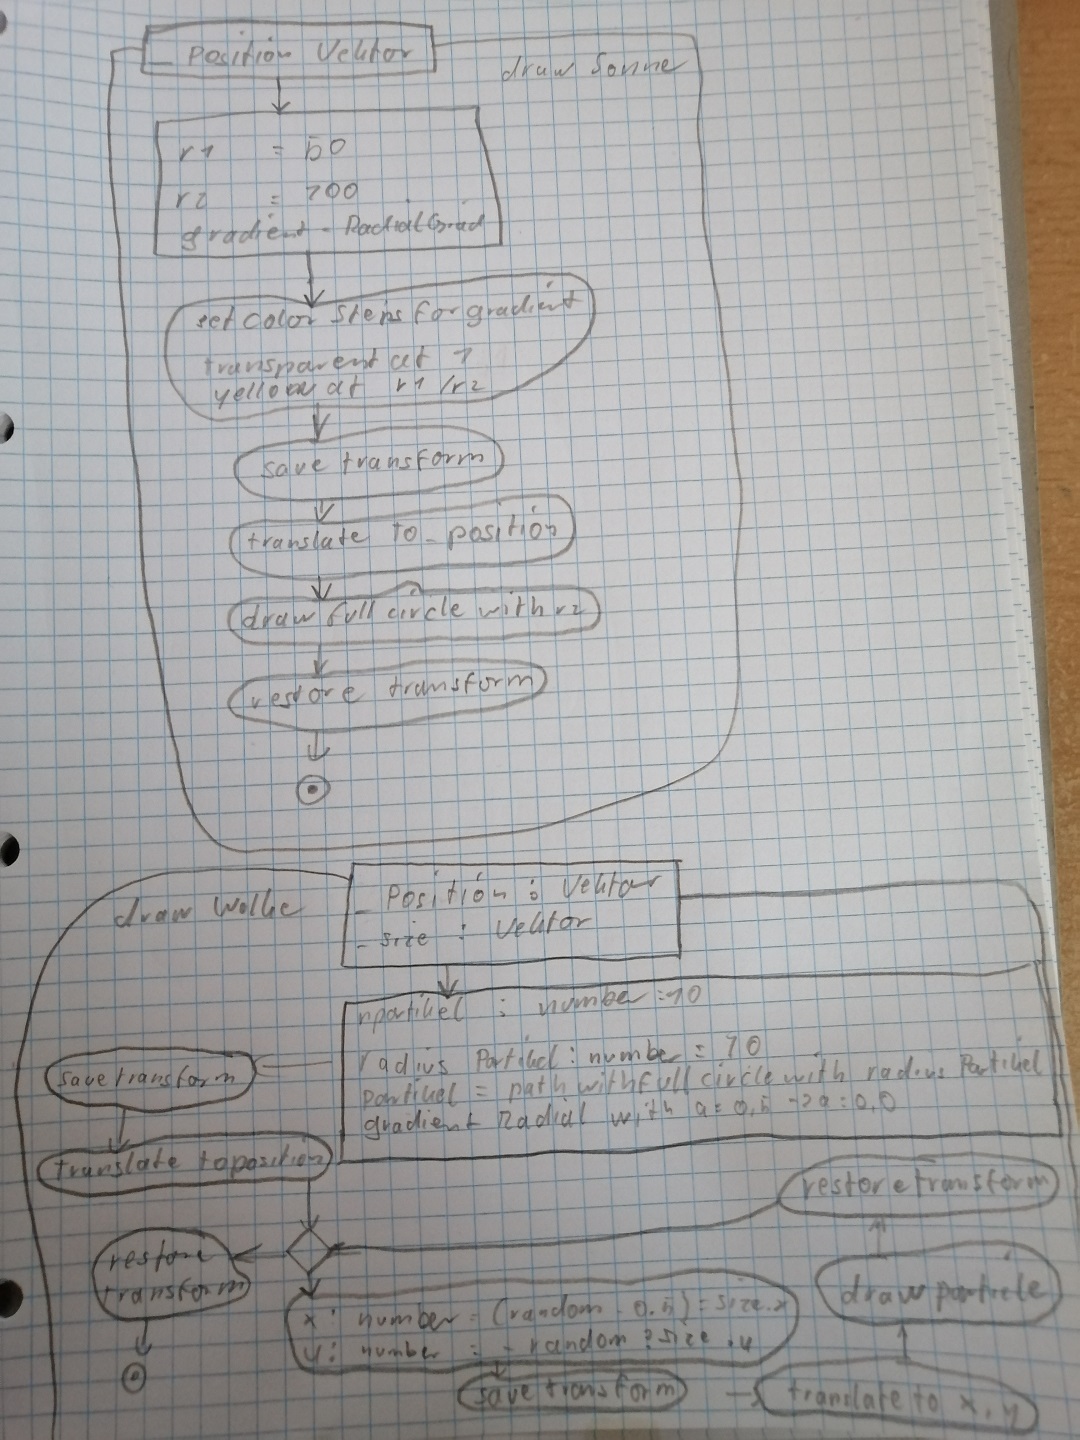 _ Position Vektor
draw Sonne
r1 = 50
r2 = 200
gradient = RadialGrad
set color Steps for gradient
transparent at 1
yellow at r1/r2
save transform
translate to _position
draw full circle with r2
restore transform
draw Wolke
_ Position : Vektor
_ size : Vektor
npartikel : number = 10
radius Partikel : number = 70
partikel = path with full circle with radius Partikel
gradient Radial with a = 0,5 -> a = 0,0
save transform
translate to position
restore transform
restore
transform
draw particle
x : number = (random - 0.5) = size.x
y : number = - random : size.y
save transform
translate to x, y